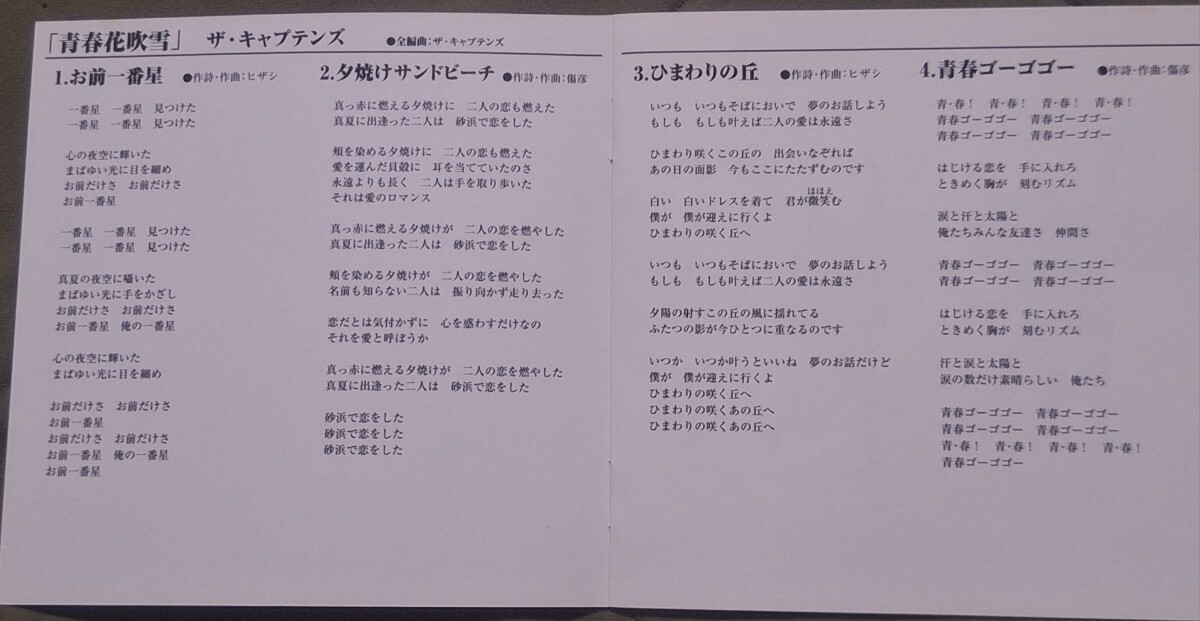 「青春花吹雪」 ザ・キャプテンズ ●全編曲：ザ・キャプテンズ
1.お前一番星 ●作詩・作曲：ヒザシ
一番星 一番星 見つけた
一番星 一番星 見つけた
心の夜空に輝いた
まばゆい光に目を細め
お前だけさ お前だけさ
お前一番星
一番星 一番星 見つけた
一番星 一番星 見つけた
真夏の夜空に囁いた
まばゆい光に手をかざし
お前だけさ お前だけさ
お前一番星 俺の一番星
心の夜空に輝いた
まばゆい光に目を細め
お前だけさ お前だけさ
お前一番星
お前だけさ お前だけさ
お前一番星 俺の一番星
お前一番星
2.夕焼けサンドビーチ ●作詩・作曲：傷彦
真っ赤に燃える夕焼けに 二人の恋も燃えた
真夏に出逢った二人は 砂浜で恋をした
頬を染める夕焼けに 二人の恋も燃えた
愛を運んだ貝殻に 耳を当てていたのさ
永遠よりも長く 二人は手を取り歩いた
それは愛のロマンス
真っ赤に燃える夕焼けが 二人の恋を燃やした
真夏に出逢った二人は 砂浜で恋をした
頬を染める夕焼けが 二人の恋を燃やした
名前も知らない二人は 振り向かず走り去った
恋だとは気付かずに 心を惑わすだけなの
それを愛と呼ぼうか
真っ赤に燃える夕焼けが 二人の恋を燃やした
真夏に出逢った二人は 砂浜で恋をした
砂浜で恋をした
砂浜で恋をした
砂浜で恋をした
3.ひまわりの丘 ●作詩・作曲：ヒザシ
いつも いつもそばにおいで 夢のお話しよう
もしも もしも叶えば二人の愛は永遠さ
ひまわり咲くこの丘の 出会いなぞれば
あの日の面影 今もここにたたずむのです
ほほえ
白い 白いドレスを着て 君が微笑む
僕が 僕が迎えに行くよ
ひまわりの咲く丘へ
いつも いつもそばにおいで 夢のお話しよう
もしも もしも叶えば二人の愛は永遠さ
夕陽の射すこの丘の風に揺れてる
ふたつの影が今ひとつに重なるのです
いつか いつか叶うといいね 夢のお話だけど
僕が 僕が迎えに行くよ
ひまわりの咲く丘へ
ひまわりの咲くあの丘へ
ひまわりの咲くあの丘へ
4.青春ゴーゴゴー ●作詩・作曲：傷彦
青・春！ 青・春！ 青・春！ 青・春！
青春ゴーゴゴー 青春ゴーゴゴー
青春ゴーゴゴー 青春ゴーゴゴー
はじける恋を 手に入れろ
ときめく胸が 刻むリズム
涙と汗と太陽と
俺たちみんな友達さ 仲間さ
青春ゴーゴゴー 青春ゴーゴゴー
青春ゴーゴゴー 青春ゴーゴゴー
はじける恋を 手に入れろ
ときめく胸が 刻むリズム
汗と涙と太陽と
涙の数だけ素晴らしい 俺たち
青春ゴーゴゴー 青春ゴーゴゴー
青春ゴーゴゴー 青春ゴーゴゴー
青・春！ 青・春！ 青・春！ 青・春！
青春ゴーゴゴー